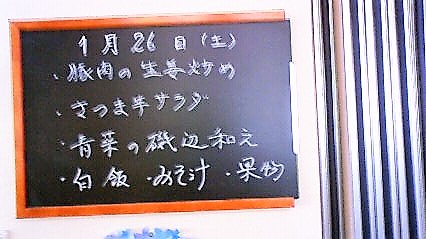 1月26日(土)
・豚肉の生姜炒め
・さつま芋サラダ
・青菜の磯辺和え
・白飯 ・みそ汁 ・果物